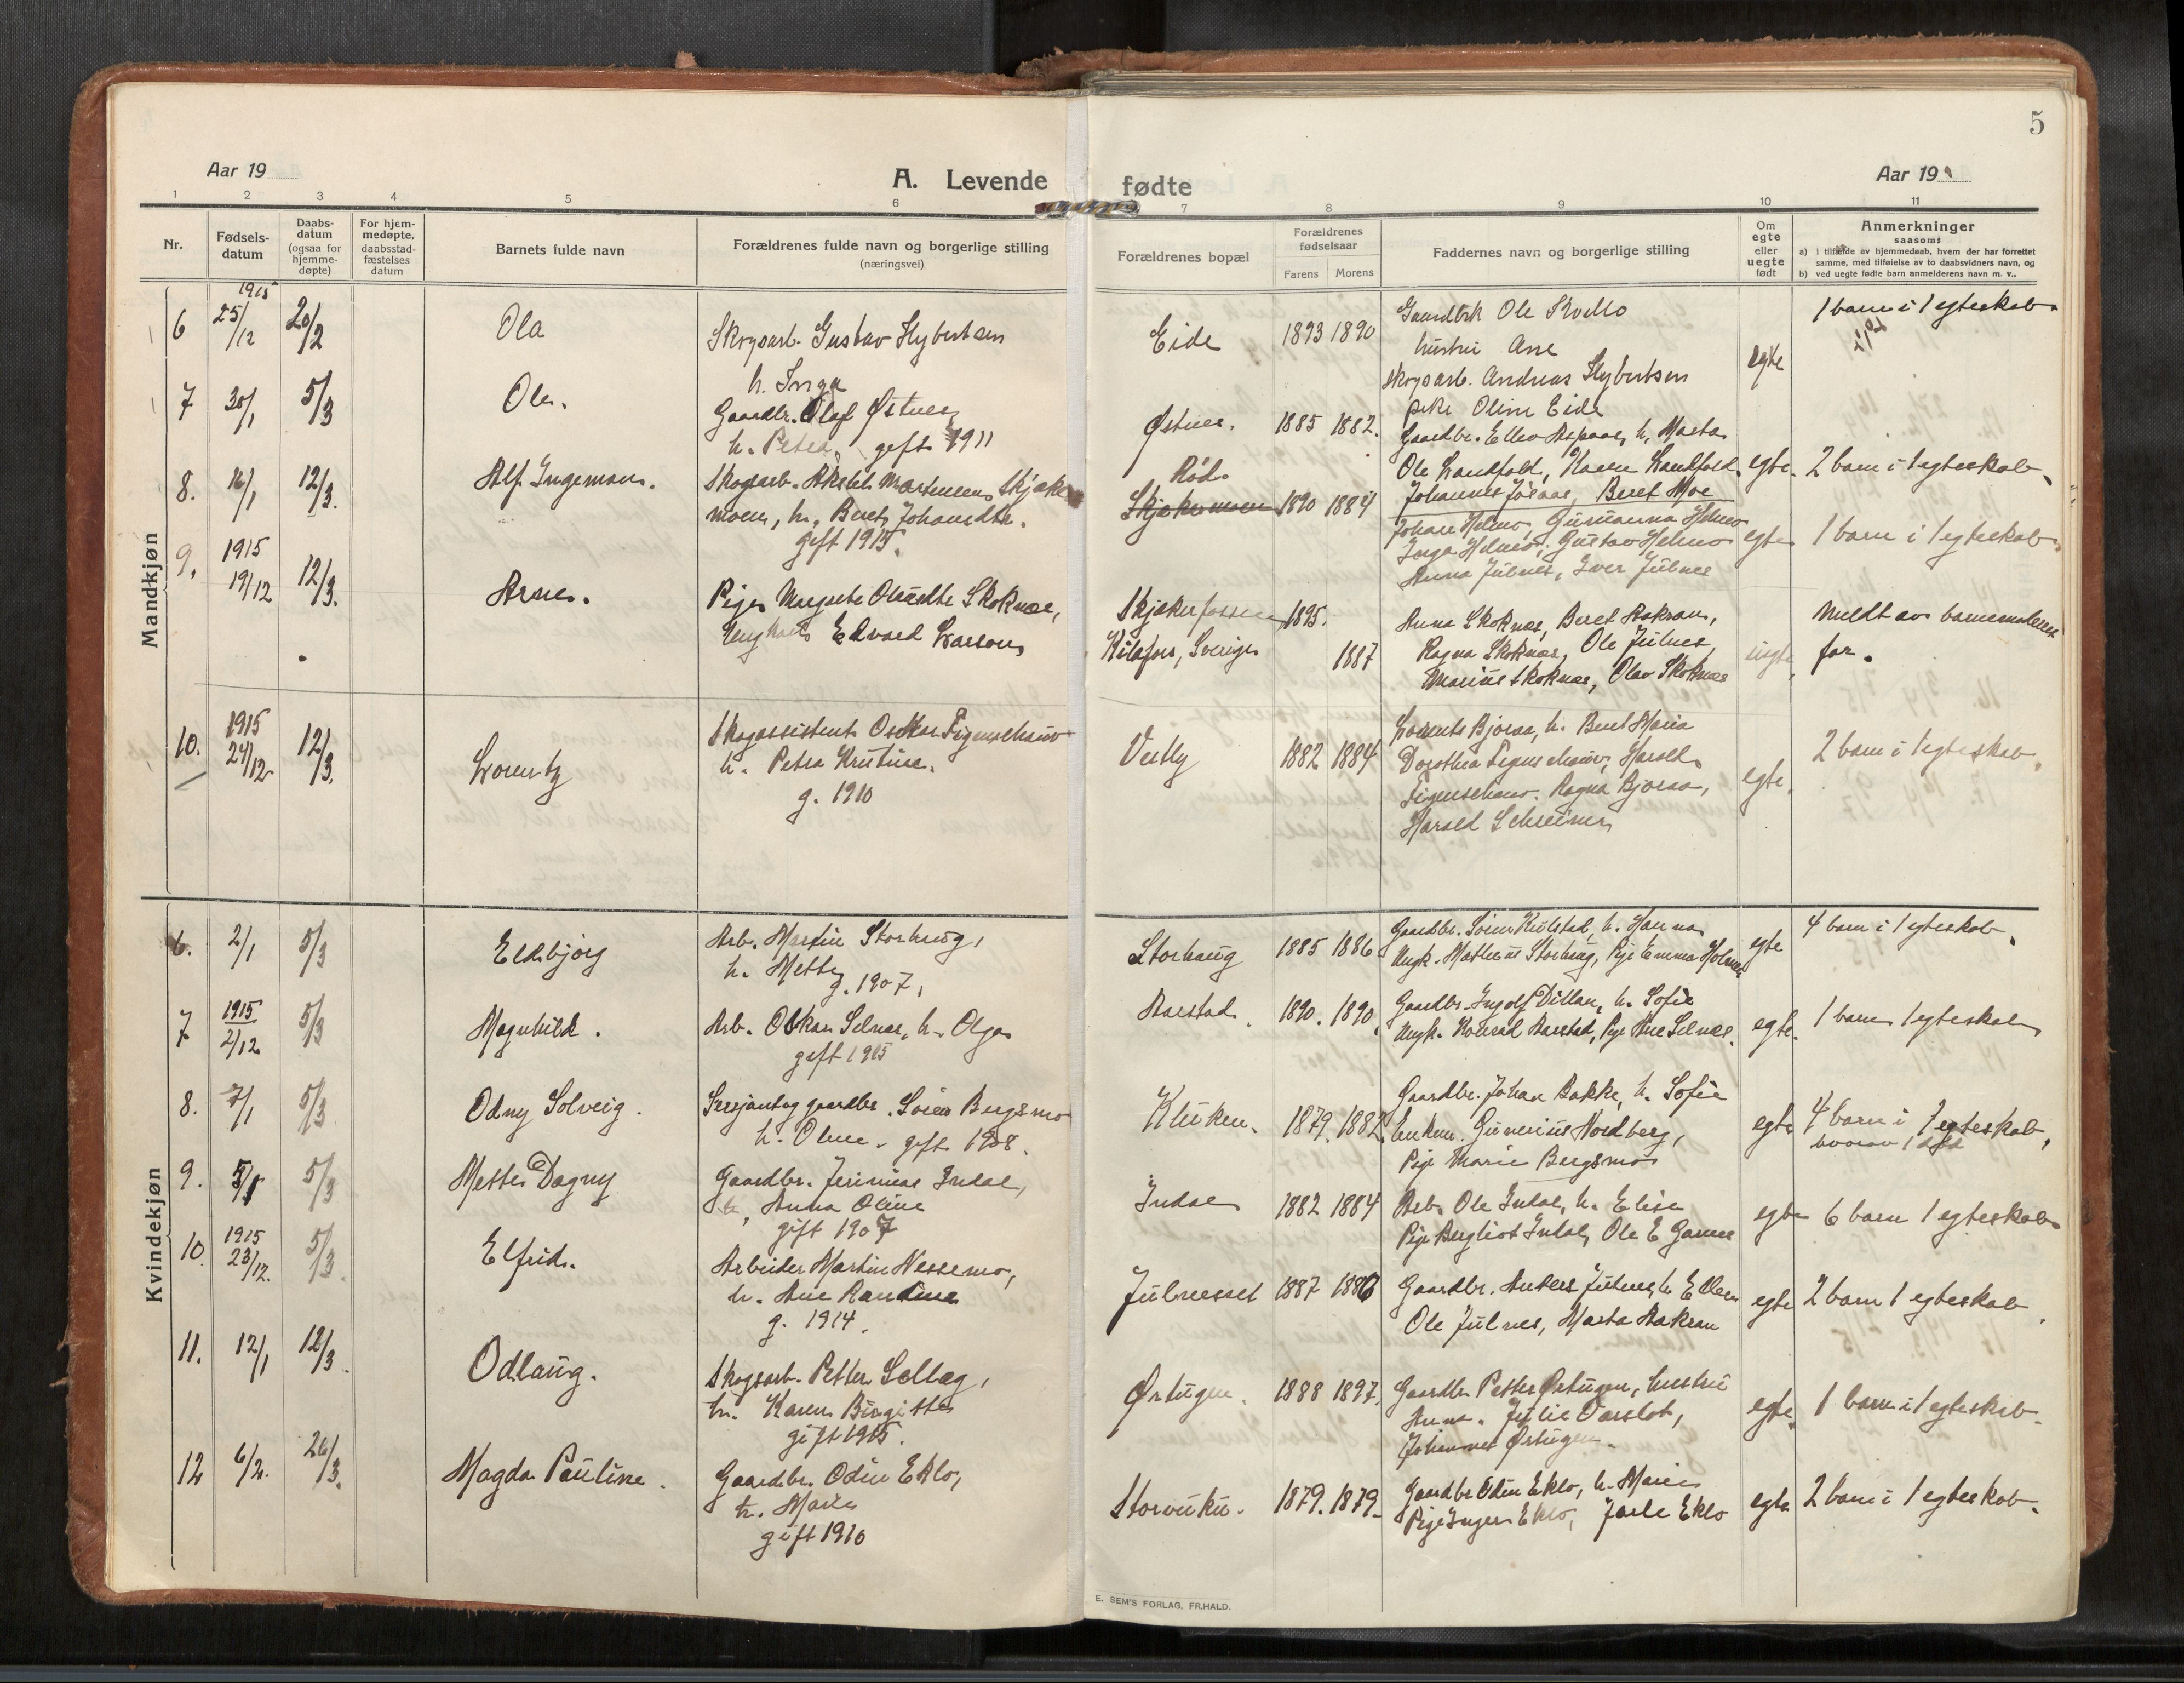 5
Aar 19
A. Levende
fødte
Aar 19
1 2 3 4 5 6 7 8 9 10 11
Nr.
Fødsels-
datum
Daabs-
datum
(ogsaa for
hjemme-
døpte)
For hjem-
medøpte,
daabsstad-
fæstelses
datum
Barnets fulde navn
Forældrenes fulde navn og borgerlige stilling
(næringsvei)
Forældrenes bopæl
Forældrenes
fødselsaar
Farens Morens
Faddernes navn og borgerlige stilling
Om
egte
eller
uegte
født
Anmerkninger
saasom:
a) i tilfælde av hjemmedaab, hvem der har forrettet
samme, med tilføielse av to daabsvidners navn, og
b) ved uegte fødte barn anmelderens navn m. v..
Mandkjøn
6
1915
25/12
20/2
Ola
Skogsarb. Gustav Hybertsen
h. Inga
Eide
1893 1890
Gaardbrk Ole Skrello
hustru Ane
Skogsarb. Andreas Hybertsen
pike Oline Eide
egte
1 barn i 1 egteskab
7
30/1
5/3
Ole.
Gaardbr. Olaf Østnes,
h. Petra, geft 1911
Østnes.
1885 1882.
Gaardbr. Ellev Aspaas, h. Marta
Ole Landfald, Karen Landfald.
Johannes Josaas, Beret Moe
egte.
2 barn i 1 egteskab.
8.
16/1
12/3.
Alf Ingemann.
Skogsarb. Aksel Martinsen Skjæker
moen, h. Beret Johansdtr.
gift 1915.
Rød
Skjækermoen
1890 1884
Johan Helmo, Gurianna Helmo
Inga Helmo, Gustav Helmo
Anna Julnes, Iver Julnes
egte
1 barn i 1 egteskab.
9.
1915
19/12
12/3.
Arne.
Pige Margrete Olausdtr Skoknæs,
Ungkarl Edvard Larson
Skjækerfossen
Kilafors, Sverige
1895.
1887
Anna Skoknæs, Beret Aakran,
Ragna Skoknæs, Ole Julnes,
Marius Skoknæs, Olav Skoknæs
uegte,
Meldt av barnemoderens
far.
10.
1915
24/12
12/3.
Lorentz
Skogassistent Oskar Figenschau
h. Petra Kristine.
g. 1910
Verby
1882 1884
Lorents Bjoraa, h. Beret Maria
Dorothea Figenschau, Harald
Figenschau. Ragna Bjoraa,
Harald Schreiner
egte.
2 barn i 1 egteskab.
Kvindekjøn
6.
2/1
5/3
Eldbjørg
Arb. Martin Storhaug,
h. Mette
g. 1907,
Storhaug
1885 1886
Gaardbr. Søren Kulstad, h. Hanna
Ungk. Matheus Storhaug, Pige Emma Holmen
egte
4 barn i 1 egteskab.
7
1915
2/12
5/3
Magnhild.
Arb. Oskar Selnæs, h. Olga
gift 1915
Aarstad.
1890. 1890.
Gaardbr. Ingolf Dillan, h. Sofie
Ungk. Konrad Aarstad, Pige Ane Selnæs.
egte.
1 barn 1 egteskab
8.
7/1
5/3
Odny Solveig.
Sersjant og gaardbr. Søren Bergsmo
h. Oline. gift 1908.
Kluken.
1879. 1882.
Gaardbr. Johan Bakke, h. Sofie
Enkem. Gunerius Nordberg,
Pige Marie Bergsmo
egte
4 barn i 1 egteskab,
hvorav 1 død
9.
5/1
5/3
Mette Dagny
Gaardbr. Jerimias Indal,
h, Anna Oline
gift 1907
Indal
1882 1884
Arb. Ole Indal, h. Elise
Pige Bergliot Indal, Ole E Garnes
egte
6 barn 1 egteskab
10
1915
23/12.
5/3.
Elfrid.
Arbeider Martin Nessemo,
h. Ane Randine
g. 1914.
Julnesset
1887 1886
Gaardbr. Anders Julnes, h. Ellen
Ole Julnes, Marta Aakran
egte
2 barn 1 egteskab.
11.
12/1
12/3.
Odlaug.
Skogsarb. Petter Sellæg,
h. Karen Birgitte
gift 1915.
Ørtugen.
1888 1897.
Gaardbr. Petter Ørtugen, hustru
Anna. Julie Varslot,
Johannes Ørtugen.
egte.
1 barn i 1 egteskab.
12
6/2.
26/3.
Magda Pauline.
Gaardbr. Odin Eklo,
h. Marie
gift 1910
Storvuku.
1879. 1879.
Gaardbr Odin Eklo, h. Marie
Pige Inger Eklo, Jarle Eklo
egte
2 barn i 1 egteskab.
E. SEM'S FORLAG, FR.HALD.